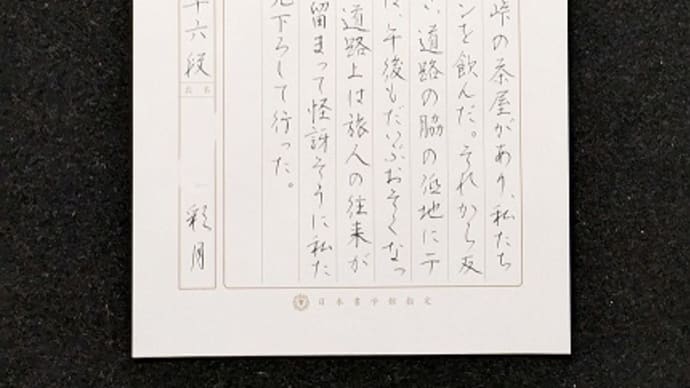 峠の茶屋があり、私たち
ンを飲んだ。それから友
い、道路の脇の低地にテ
、午後もだいぶおそくなっ
道路上は旅人の往来が
留まって怪訝そうに私た
見下ろして行った。
十六段
氏名
彩月
日本書学館指定